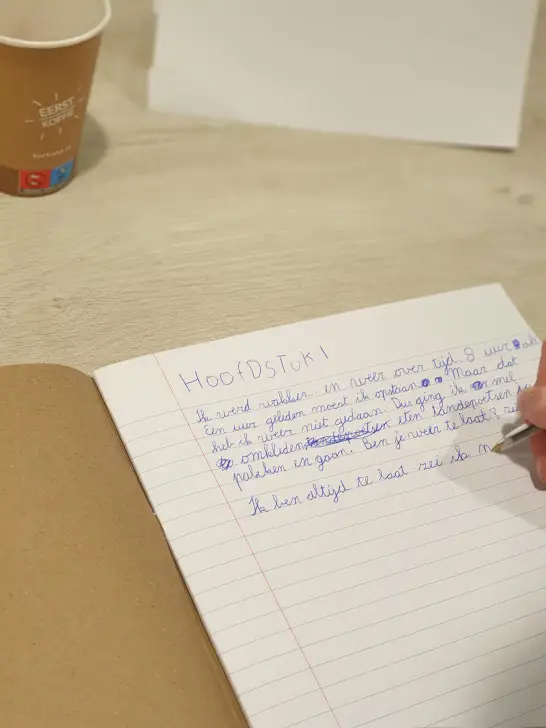 EERST
KOFFIE
HOOFDSTUK 1
Ik werd wakker. en weer over tijd. 8 uur als
Een uur geleden moest ik opstaan. Maar dat
heb ik weer niet gedaan. Dus ging ik snel
omkleden eten tandepoetsen
pakken en gaan. Ben je weer te laat?
Ik ben altijd te laat zei ik